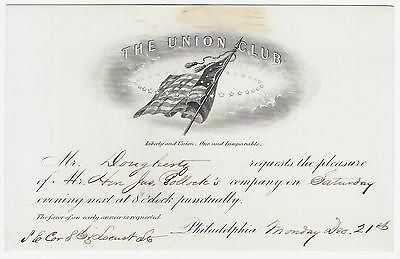 THE UNION CLUB
Liberty and Union, One and Inseparable.
Mr. Dougherty requests the pleasure
of Mr. Hon. Jas. Pollock's company on Saturday
evening next at 8 o'clock punctually.
The favor of an early answer is requested.
Philadelphia Monday Dec. 21st
S. E. Cor 8 & Locust Sts